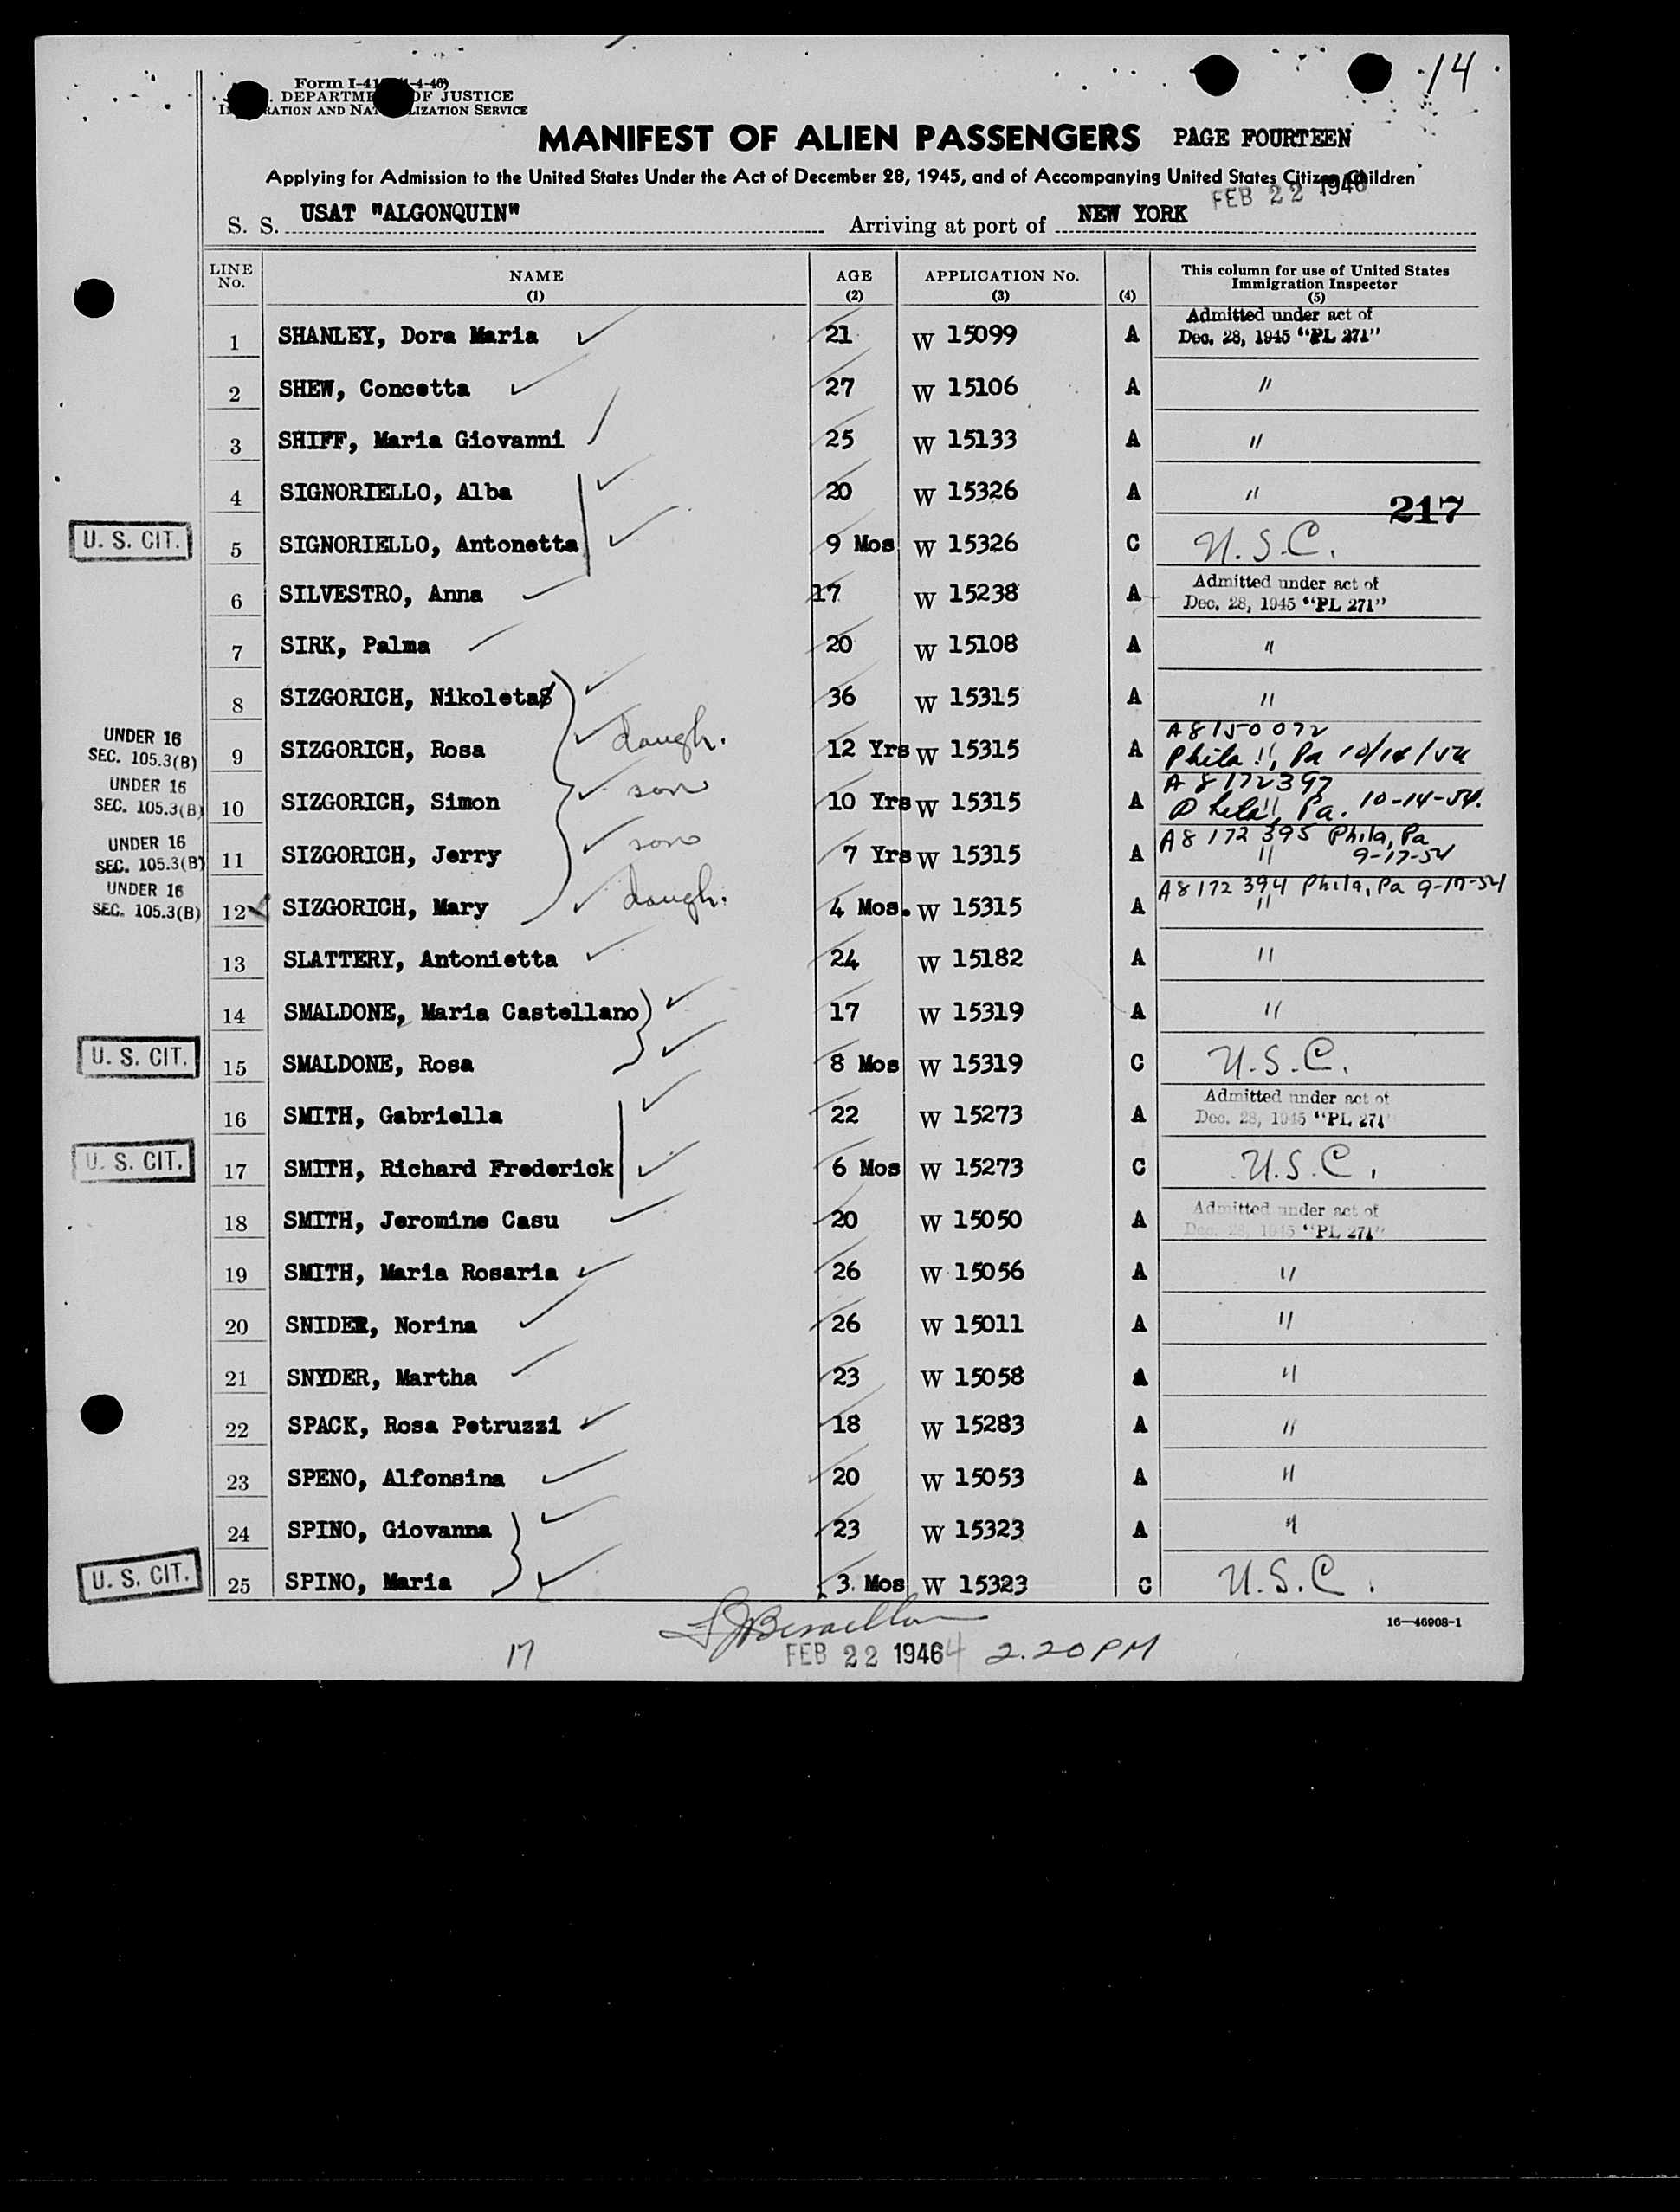 14
Form I-41 (1-4-46)
DEPARTMENT OF JUSTICE
IMMIGRATION AND NATURALIZATION SERVICE
MANIFEST OF ALIEN PASSENGERS PAGE FOURTEEN
Applying for Admission to the United States Under the Act of December 28, 1945, and of Accompanying United States Citizen Children
FEB 22 1946
S. S. USAT "ALGONQUIN" Arriving at port of NEW YORK
LINE No. NAME (1) AGE (2) APPLICATION No. (3) (4) This column for use of United States Immigration Inspector (5)
1 SHANLEY, Dora Maria 21 W 15099 A Admitted under act of Dec. 28, 1945 "PL 271"
2 SHEW, Concetta 27 W 15106 A "
3 SHIFF, Maria Giovanni 25 W 15133 A "
4 SIGNORIELLO, Alba 20 W 15326 A "
217
U. S. CIT. 5 SIGNORIELLO, Antonetta 9 Mos W 15326 C U.S.C.
6 SILVESTRO, Anna 17 W 15238 A Admitted under act of Dec. 28, 1945 "PL 271"
7 SIRK, Palma 20 W 15108 A "
8 SIZGORICH, Nikoleta 36 W 15315 A "
UNDER 16 SEC. 105.3(B) 9 SIZGORICH, Rosa daugh. 12 Yrs W 15315 A A8150072 Phila, Pa
UNDER 16 SEC. 105.3(B) 10 SIZGORICH, Simon son 10 Yrs W 15315 A A 8172397 " Phila, Pa. 10-14-54.
UNDER 16 SEC. 105.3(B) 11 SIZGORICH, Jerry son 7 Yrs W 15315 A A8 172 395 Phila, Pa " 9-17-54
UNDER 16 SEC. 105.3(B) 12 SIZGORICH, Mary daugh. 4 Mos. W 15315 A A8172 394 Phila, Pa 9-17-54 "
13 SLATTERY, Antonietta 24 W 15182 A "
14 SMALDONE, Maria Castellano 17 W 15319 A "
U. S. CIT. 15 SMALDONE, Rosa 8 Mos W 15319 C U.S.C.
16 SMITH, Gabriella 22 W 15273 A Admitted under act of Dec. 28, 1945 "PL 271"
U. S. CIT. 17 SMITH, Richard Frederick 6 Mos W 15273 C U.S.C.
18 SMITH, Jeromine Casu 20 W 15050 A Admitted under act of Dec. 28, 1945 "PL 271"
19 SMITH, Maria Rosaria 26 W 15056 A "
20 SNIDER, Norina 26 W 15011 A "
21 SNYDER, Martha 23 W 15058 A "
22 SPACK, Rosa Petruzzi 18 W 15283 A "
23 SPENO, Alfonsina 20 W 15053 A "
24 SPINO, Giovanna 23 W 15323 A "
U. S. CIT. 25 SPINO, Maria 3 Mos W 15323 C U.S.C.
16—46908-1
17 FEB 22 1946 4 2.20 PM